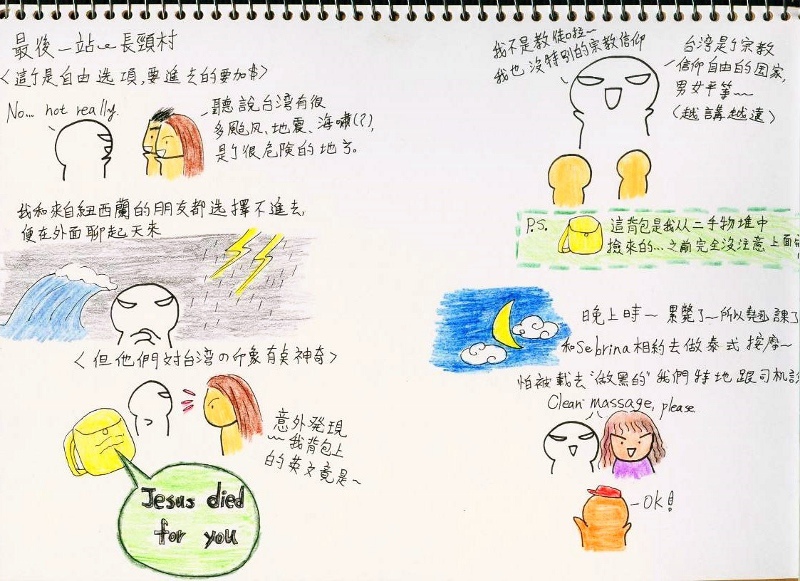 最後一站~長頸村
<這個是自由选項,要進去的要加$>
No... not really.
聽說台湾有很
多颱风、地震、海嘯(?),
是个很危険的地方。
我和來自紐西蘭的朋友都选擇不進去,
便在外面聊起天來
<但他們対台湾の印象有点神奇>
意外発現
~我背包上
的英文竟是~
Jesus died
for you
我不是教徒啦~
我也沒特别的宗教信仰
台湾是个宗教
信仰自由的国家,
男女平等~
<越講越遠>
P.S.
這背包是我从二手物堆中
撿來的...之前完全沒注意上面
晚上時~ 累斃了~所以翹課了
和Sebrina相約去做泰式按摩~
怕被載去"做黑的"我們特地跟司机説
Clean massage, please
OK!